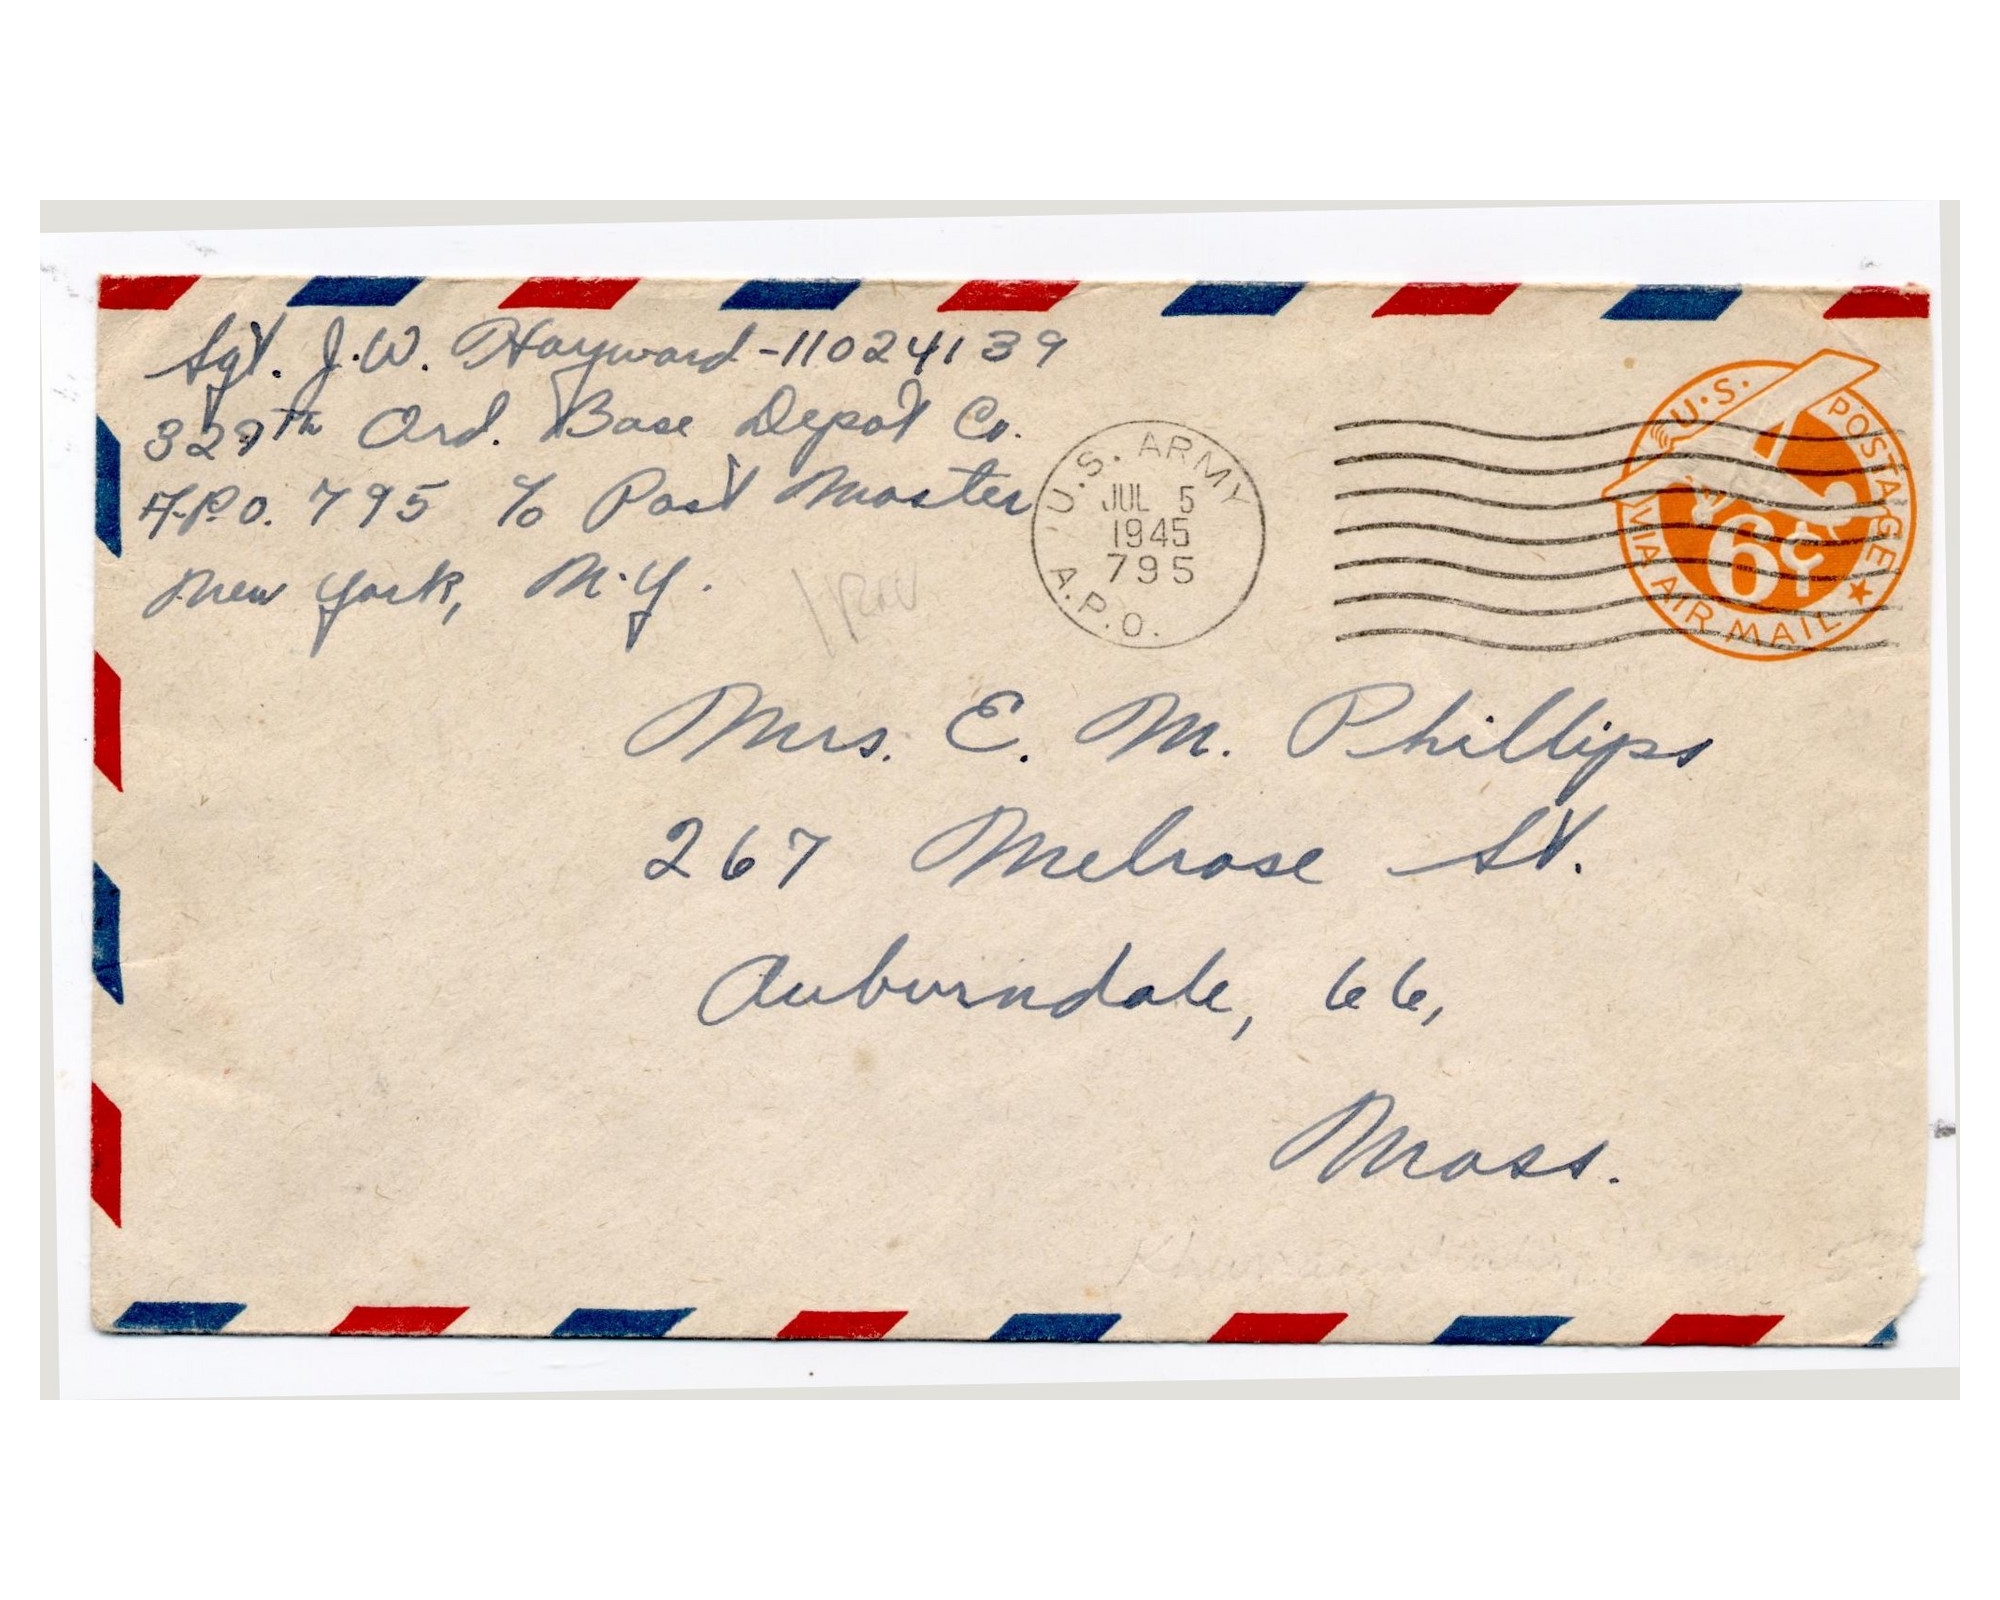 Sgt. J.W. Hayward-11024139
329th Ord. Base Depot Co.
A.P.O. 795 c/o Post Master
New York, N.Y.
U.S. ARMY
JUL 5
1945
795
A.P.O.
U.S. POSTAGE
6¢
VIA AIR MAIL
Mrs. E. M. Phillips
267 Melrose St.
Auburndale, 66,
Mass.